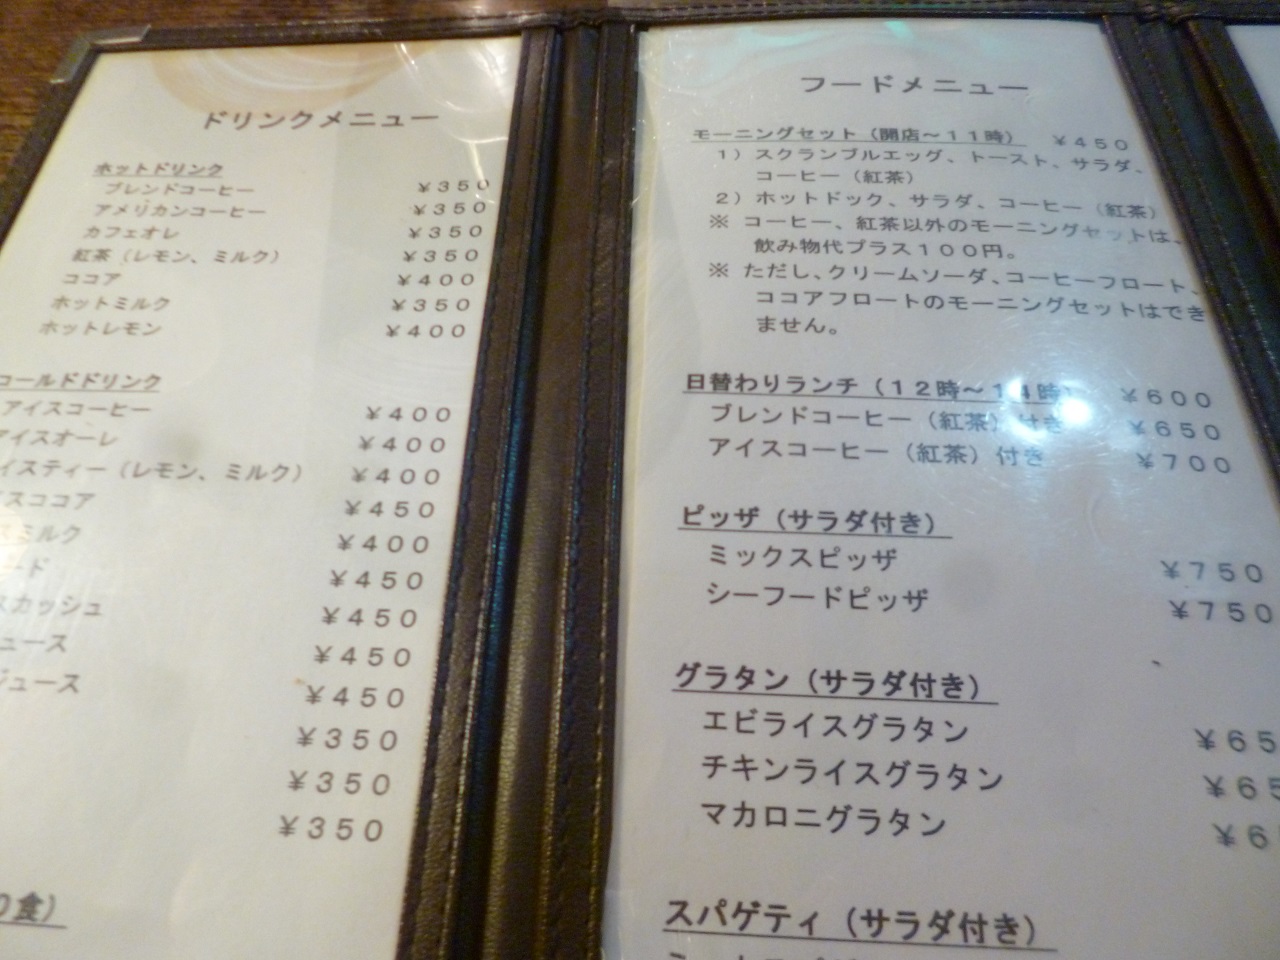 ドリンクメニュー
ホットドリンク
ブレンドコーヒー ¥350
アメリカンコーヒー ¥350
カフェオレ ¥350
紅茶(レモン、ミルク) ¥350
ココア ¥400
ホットミルク ¥350
ホットレモン ¥400
コールドドリンク
アイスコーヒー ¥400
アイスオーレ ¥400
イスティー(レモン、ミルク) ¥400
スココア ¥450
ミルク ¥400
ード ¥450
スカッシュ ¥450
ュース ¥450
ジュース ¥450
¥350
¥350
¥350
0食)
フードメニュー
モーニングセット(開店～11時) ¥450
1)スクランブルエッグ、トースト、サラダ、
コーヒー(紅茶)
2)ホットドック、サラダ、コーヒー(紅茶)
※ コーヒー、紅茶以外のモーニングセットは、
飲み物代プラス100円。
※ ただし、クリームソーダ、コーヒーフロート、
ココアフロートのモーニングセットはでき
ません。
日替わりランチ(12時～14時) ¥600
ブレンドコーヒー(紅茶)付き ¥650
アイスコーヒー(紅茶)付き ¥700
ピッザ(サラダ付き)
ミックスピッザ ¥750
シーフードピッザ ¥750
グラタン(サラダ付き)
エビライスグラタン ¥65
チキンライスグラタン ¥65
マカロニグラタン ¥6
スパゲティ(サラダ付き)